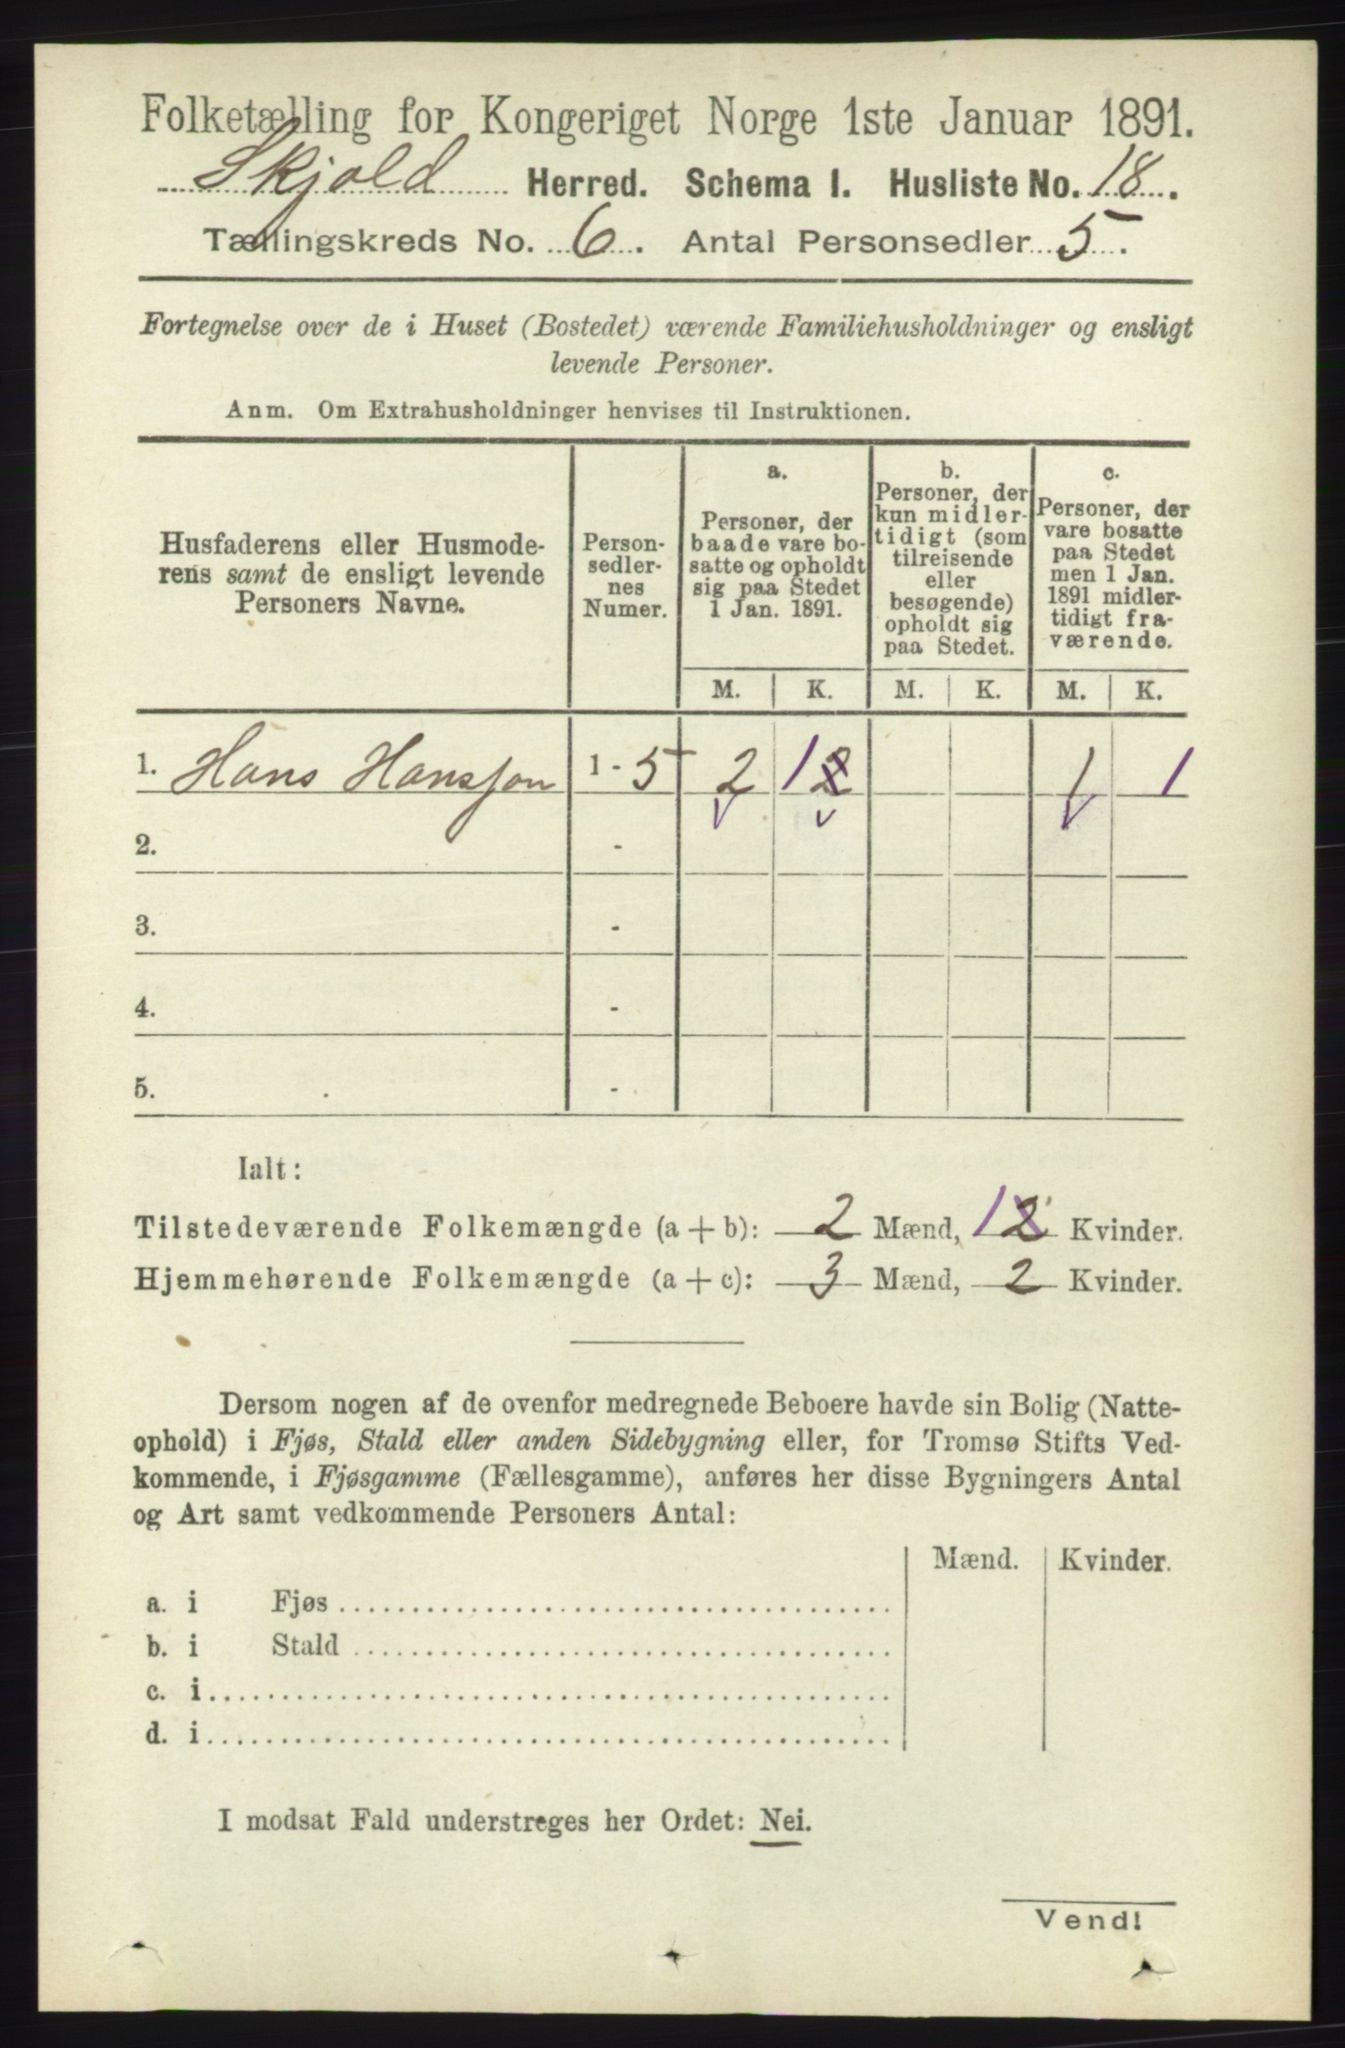 Folketælling for Kongeriget Norge 1ste Januar 1891.
Skjold Herred. Schema I. Husliste No. 18.
Tællingskreds No. 6. Antal Personsedler 5.
Fortegnelse over de i Huset (Bostedet) værende Familiehusholdninger og ensligt
levende Personer.
Anm. Om Extrahusholdninger henvises til Instruktionen.
Husfaderens eller Husmode-
rens samt de ensligt levende
Personers Navne.
Person-
sedler-
nes
Numer.
a.
Personer, der
baade vare bo-
satte og opholdt
sig paa Stedet
1 Jan. 1891.
b.
Personer, der
kun midler-
tidigt (som
tilreisende
eller
besøgende)
opholdt sig
paa Stedet.
c.
Personer, der
vare bosatte
paa Stedet
men 1 Jan.
1891 midler-
tidigt fra-
værende.
M. K. M. K. M. K.
1. Hans Hansson 1 - 5 2 1 2 1 1
2. -
3. -
4. -
5. -
Ialt:
Tilstedeværende Folkemængde (a + b): 2 Mænd, 1 2 Kvinder.
Hjemmehørende Folkemængde (a + c): 3 Mænd, 2 Kvinder.
Dersom nogen af de ovenfor medregnede Beboere havde sin Bolig (Natte-
ophold) i Fjøs, Stald eller anden Sidebygning eller, for Tromsø Stifts Ved-
kommende, i Fjøsgamme (Fællesgamme), anføres her disse Bygningers Antal
og Art samt vedkommende Personers Antal:
Mænd. Kvinder.
a. i Fjøs
b. i Stald
c. i
d. i
I modsat Fald understreges her Ordet: Nei.
Vend!